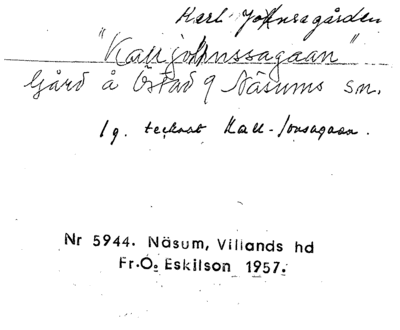 Karl-Johnsagården
"Kalljohnssagaan"
Gård å Östad 9 Näsums sn.
1 g. tecknat Kall-Jonsagaan.
Nr 5944. Näsum, Villands hd
Fr.O. Eskilson 1957.